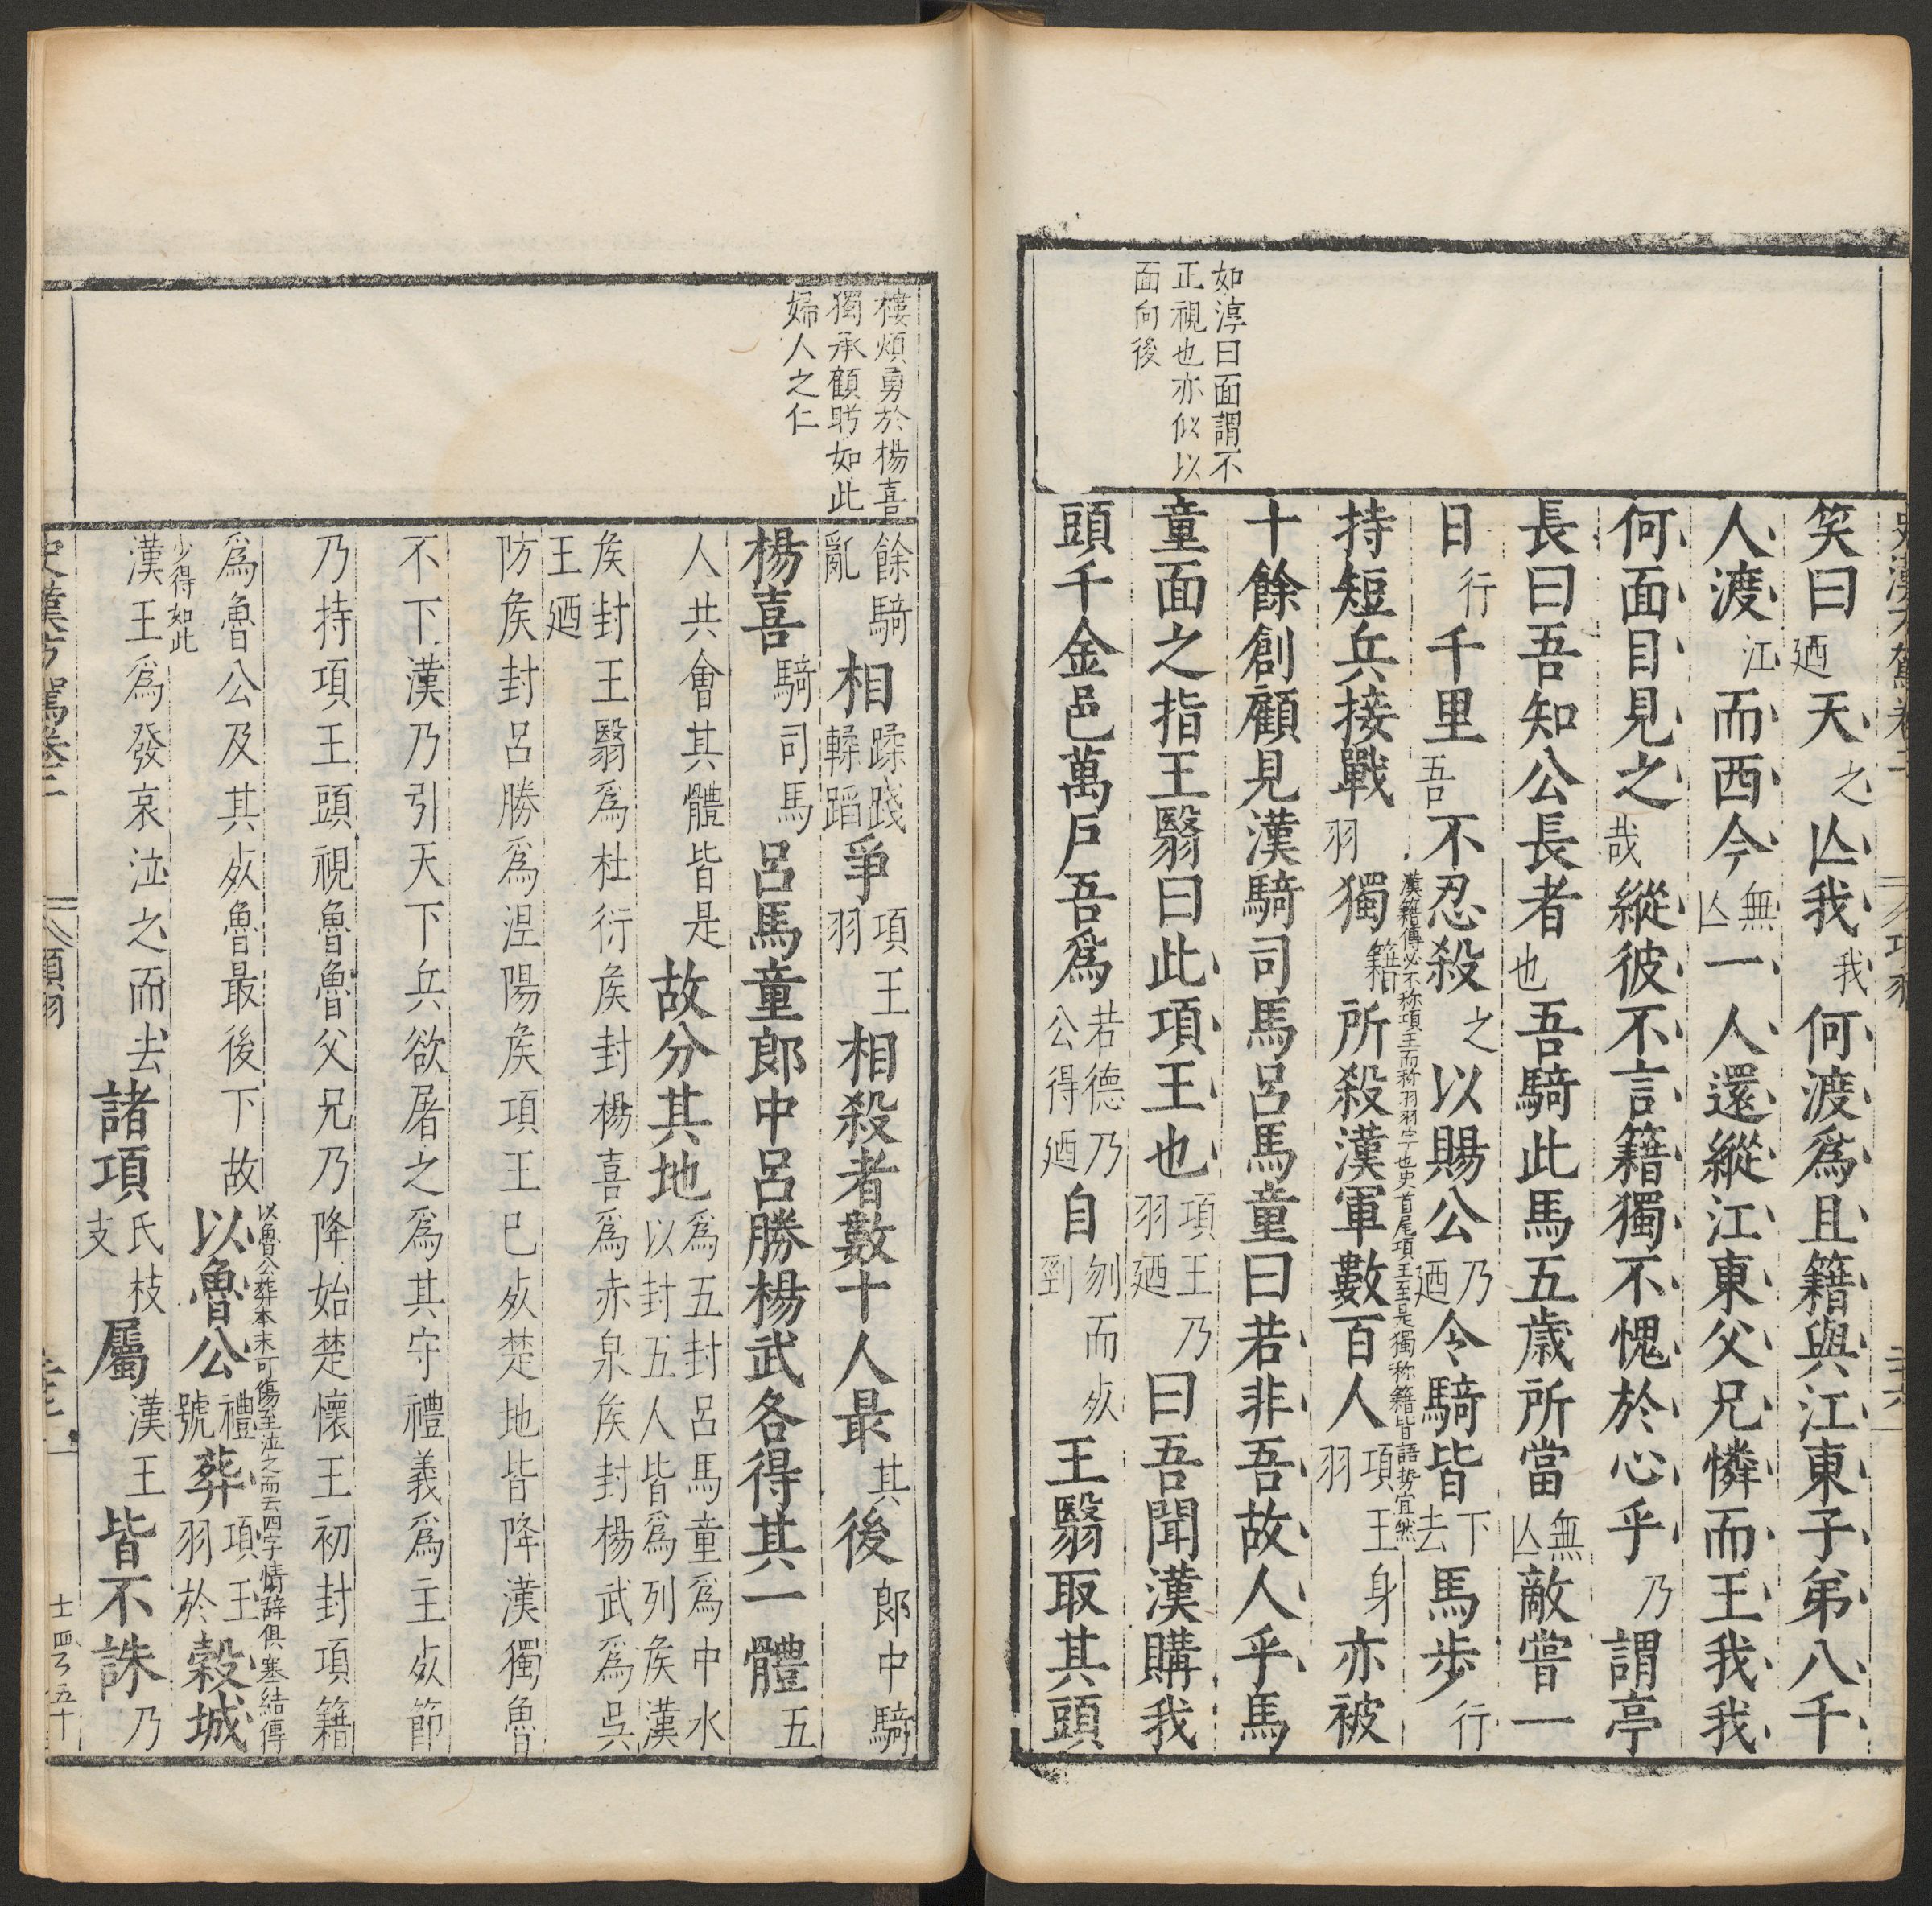 史漢方駕卷二 項羽 二十六
如淳曰面謂不
正視也亦似以
面向後
笑曰廼天之亾我我何渡爲且籍與江東子弟八千
人渡江而西今無亾一人還縱江東父兄憐而王我我
何面目見之哉縱彼不言籍獨不愧於心乎乃謂亭
長曰吾知公長者也吾騎此馬五歲所當無亾敵嘗一
日行千里吾不忍殺之以賜公乃廼令騎皆下去馬步行
漢籍傳必不称項王而称羽羽字也史首尾項王至是獨称籍皆語势宜然
持短兵接戰羽獨籍所殺漢軍數百人項王身羽亦被
十餘創顧見漢騎司馬呂馬童曰若非吾故人乎馬
童面之指王翳曰此項王也項王乃羽廼曰吾聞漢購我
頭千金邑萬戶吾爲若德乃公得廼自刎而死剄王翳取其頭
樓煩勇於楊喜
獨承顧盻如此
婦人之仁
餘騎亂相蹂踐轥蹈爭項王羽相殺者數十人最其後郎中騎
楊喜騎司馬呂馬童郎中呂勝楊武各得其一體五
人共會其體皆是故分其地爲五封呂馬童爲中水以封五人皆爲列矦漢
矦封王翳爲杜衍矦封楊喜爲赤泉矦封楊武爲吳
王廼
防矦封呂勝爲涅陽矦項王已死楚地皆降漢獨魯
不下漢乃引天下兵欲屠之爲其守禮義爲主死節
乃持項王頭視魯魯父兄乃降始楚懷王初封項籍
以魯公葬本末可傷至泣之而去四字情辞俱塞結傳
爲魯公及其死魯最後下故以魯公禮號葬項王羽於穀城
少得如此
漢王爲發哀泣之而去諸項氏枝支屬漢王皆不誅乃
史漢方駕卷二 項羽